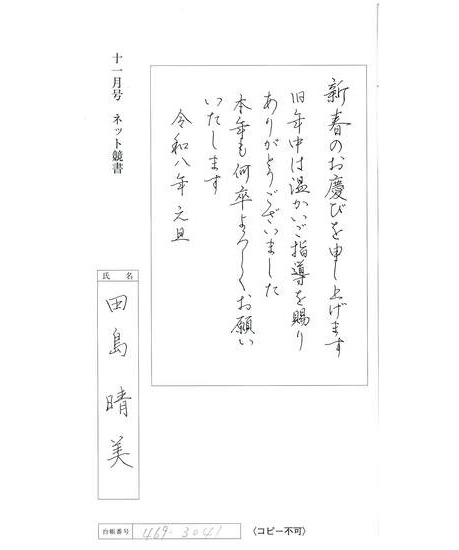 新春のお慶びを申し上げます
旧年中は温かいご指導を賜り
ありがとうございました
本年も何卒よろしくお願い
いたします
令和八年 元旦
十一月号 ネット競書
氏名
田島晴美
台帳番号 469-3041
〈コピー不可〉